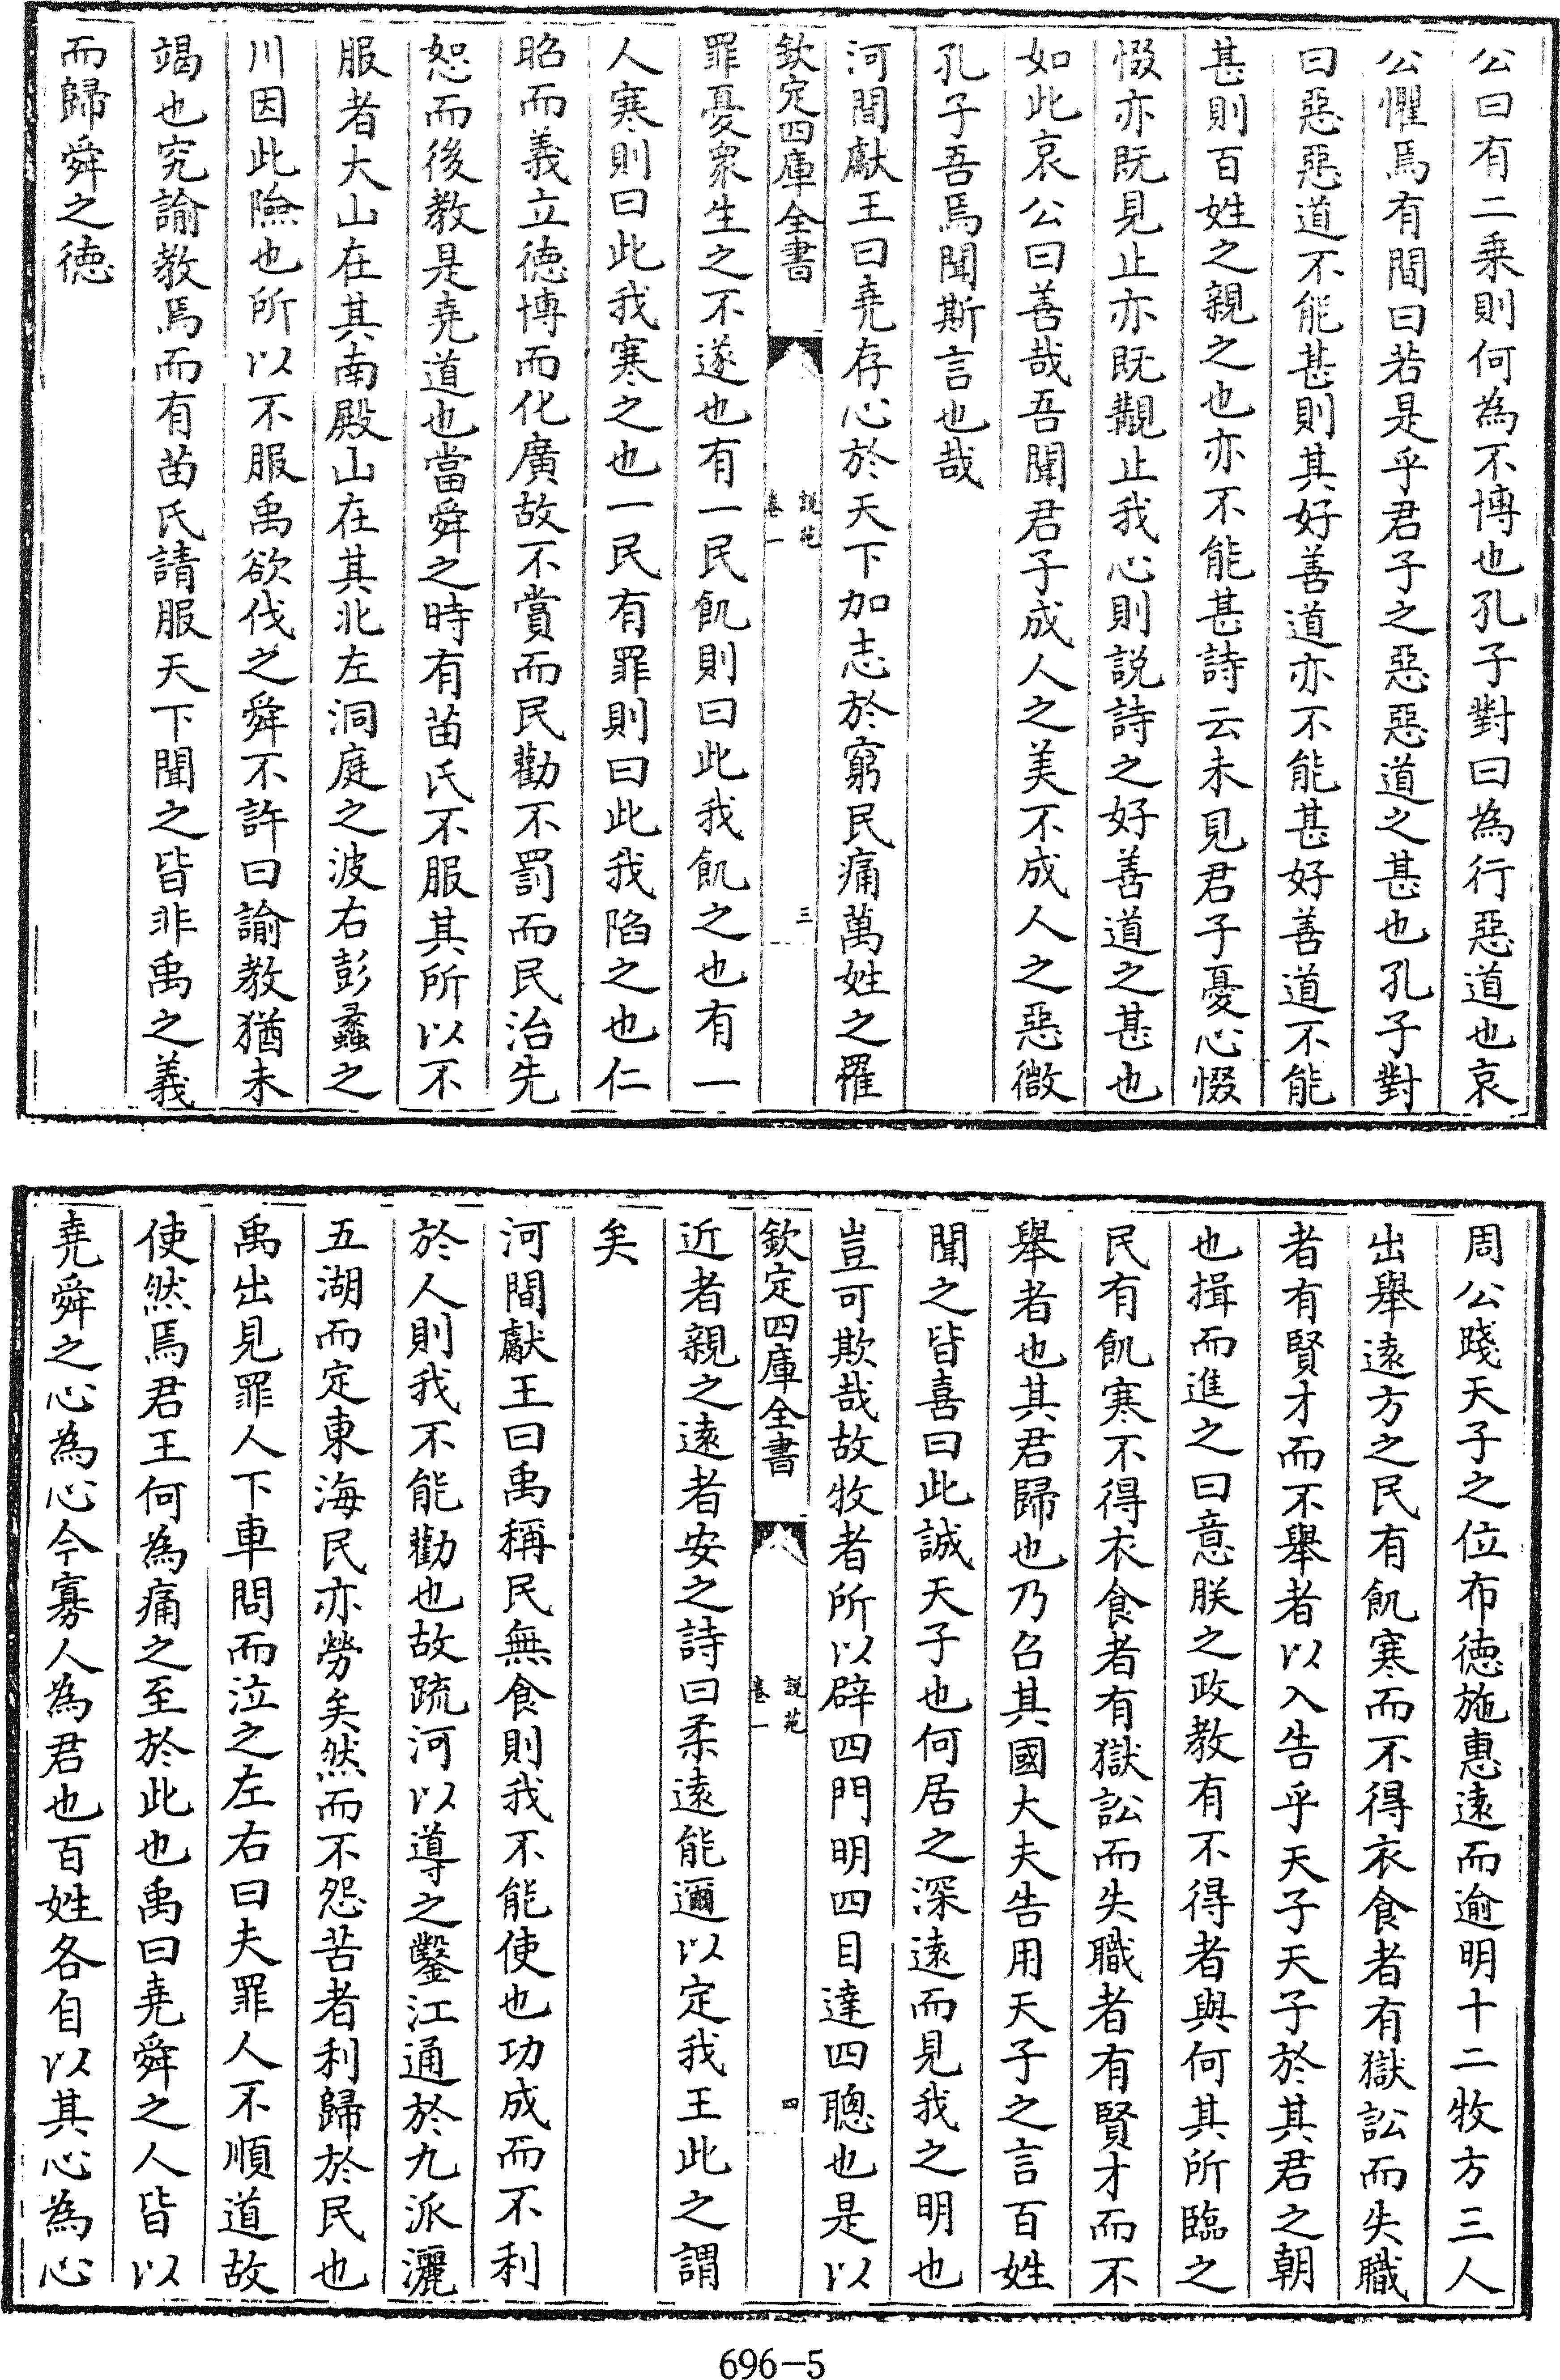 公曰有二乗則何為不博也孔子對曰為行惡道也哀
公懼焉有間曰若是乎君子之惡惡道之甚也孔子對
曰惡惡道不能甚則其好善道亦不能甚好善道不能
甚則百姓之親之也亦不能甚詩云未見君子憂心惙
惙亦既見止亦既觀止我心則説詩之好善道之甚也
如此哀公曰善哉吾聞君子成人之美不成人之惡微
孔子吾焉聞斯言也哉
河間獻王曰堯存心於天下加志於窮民痛萬姓之罹
欽定四庫全書
説苑
卷一
三
罪憂衆生之不遂也有一民飢則曰此我飢之也有一
人寒則曰此我寒之也一民有罪則曰此我陷之也仁
昭而義立徳博而化廣故不賞而民勸不罰而民治先
恕而後教是堯道也當舜之時有苗氏不服其所以不
服者大山在其南殿山在其北左洞庭之波右彭蠡之
川因此險也所以不服禹欲伐之舜不許曰諭教猶未
竭也究諭教焉而有苗氏請服天下聞之皆非禹之義
而歸舜之徳
周公踐天子之位布徳施惠逺而逾明十二牧方三人
出舉逺方之民有飢寒而不得衣食者有獄訟而失職
者有賢才而不舉者以入告乎天子天子於其君之朝
也揖而進之曰意朕之政教有不得者與何其所臨之
民有飢寒不得衣食者有獄訟而失職者有賢才而不
舉者也其君歸也乃召其國大夫告用天子之言百姓
聞之皆喜曰此誠天子也何居之深逺而見我之明也
豈可欺哉故牧者所以辟四門明四目達四聰也是以
欽定四庫全書
説苑
卷一
四
近者親之逺者安之詩曰柔逺能邇以定我王此之謂
矣
河間獻王曰禹稱民無食則我不能使也功成而不利
於人則我不能勸也故疏河以導之鑿江通於九派灑
五湖而定東海民亦勞矣然而不怨苦者利歸於民也
禹出見罪人下車問而泣之左右曰夫罪人不順道故
使然焉君王何為痛之至於此也禹曰堯舜之人皆以
堯舜之心為心今寡人為君也百姓各自以其心為心
696-5